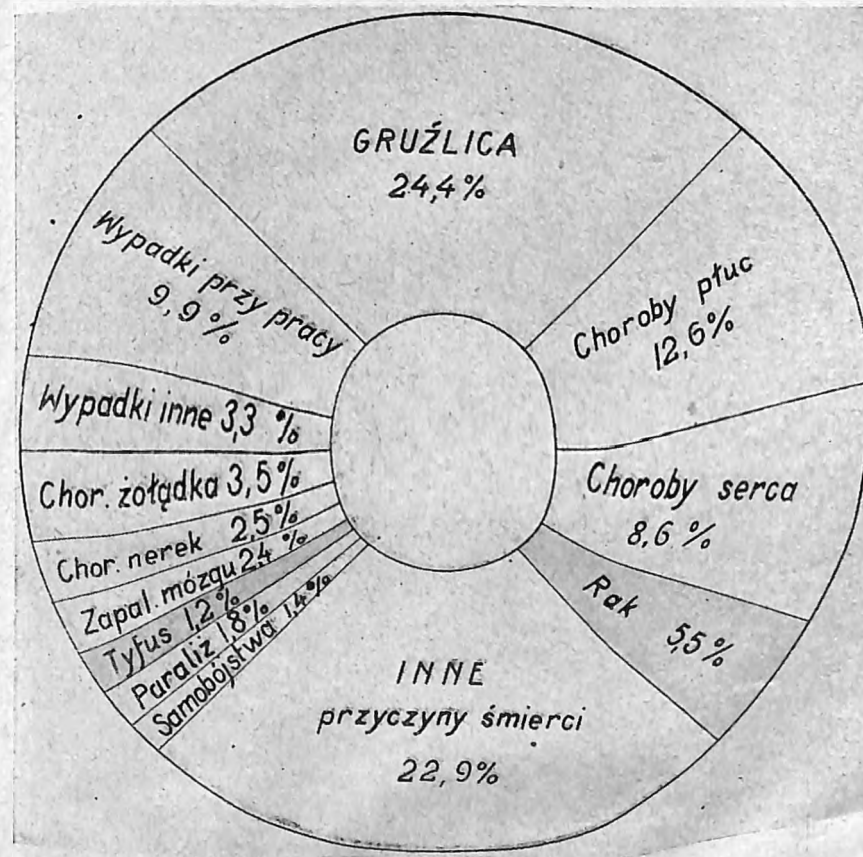 GRUŹLICA
24,4%
Choroby płuc
12,6%
Choroby serca
8,6%
Rak 5,5%
INNE
przyczyny śmierci
22,9%
Samobójstwa 1,4%
Paraliż 1,8%
Tyfus 1,2%
Zapal. mózgu 2,4 %
Chor. nerek 2,5%
Chor. żołądka 3,5%
Wypadki inne 3,3 %
Wypadki przy pracy
9,9%